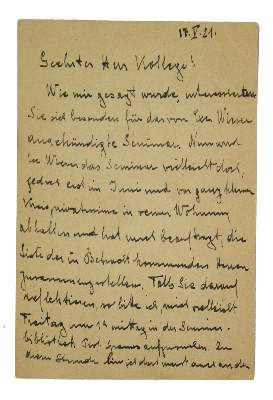 17.V.21.
Geehrter Herr Kollege!
Wie mir gesagt wurde, interessieren
Sie sich besonders für das von
angekündigte Seminar. Nun wird
das Seminar vielleicht doch,
jedoch erst im Juni und vor ganz kleinem
in seiner Wohnung
abhalten und hat mich beauftragt, die
Liste der in Betracht kommenden Herren
zusammenzustellen. Falls Sie darauf
reflektieren, so bitte ich mich vielleicht
Freitag um mittag in der Seminar-
bibliothek Prof. aufzusuchen. Zu
Stunde bin ich dort meist auch an den